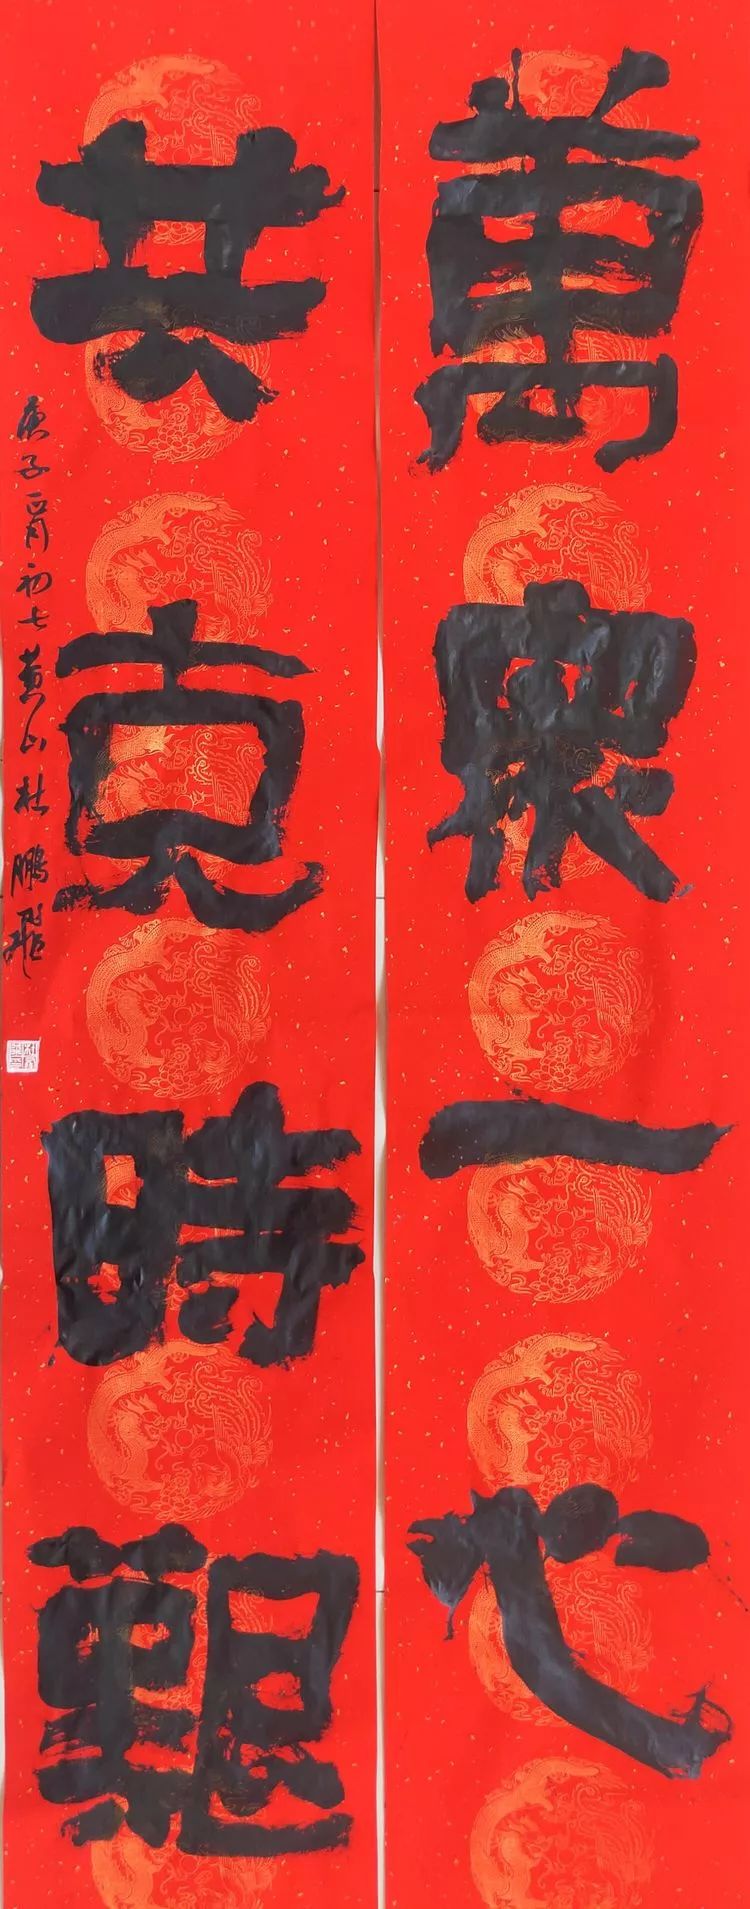 萬眾一心
共克時艱
庚子正月初七黄山杜鹏飛